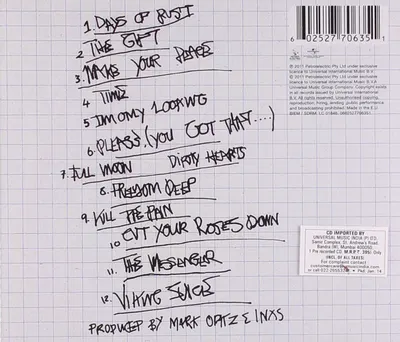 1 DAYS OF RUST
2 THE GIFT
3. MAKE YOUR PEACE
4 TIME
5 I'M ONLY LOOKING
6. PLEASE (YOU GOT THAT....)
7. FULL MOON DIRTY HEARTS
8. FREEDOM DEEP
9 KILL THE PAIN
10 CUT YOUR ROSES DOWN
11. THE MESSENGER
12. VIKING JUICE
PRODUCED BY MARK OPITZ & INXS
6 02527 70635 1
℗ 2011 Petrolelectric Pty Ltd under exclusive
licence to Universal International Music B.V.
© 2011 Petrolelectric Pty Ltd under exclusive
licence to Universal International Music B.V. A
Universal Music Group Company. Copyright exists
in all records issued by Universal International
B.V. All rights reserved. Unauthorised copying,
reproduction, hiring, lending, public performance
and broadcasting prohibited. Made in the E.U.
CD IMPORTED BY
UNIVERSAL MUSIC INDIA (P) LTD.
Andrew's Road,
Bandra (W), Mumbai 400050.
1 Pre recorded CD. M.R.P.
INCL. OF ALL TAXES
For complaint contact
Pkd: Jan. 14